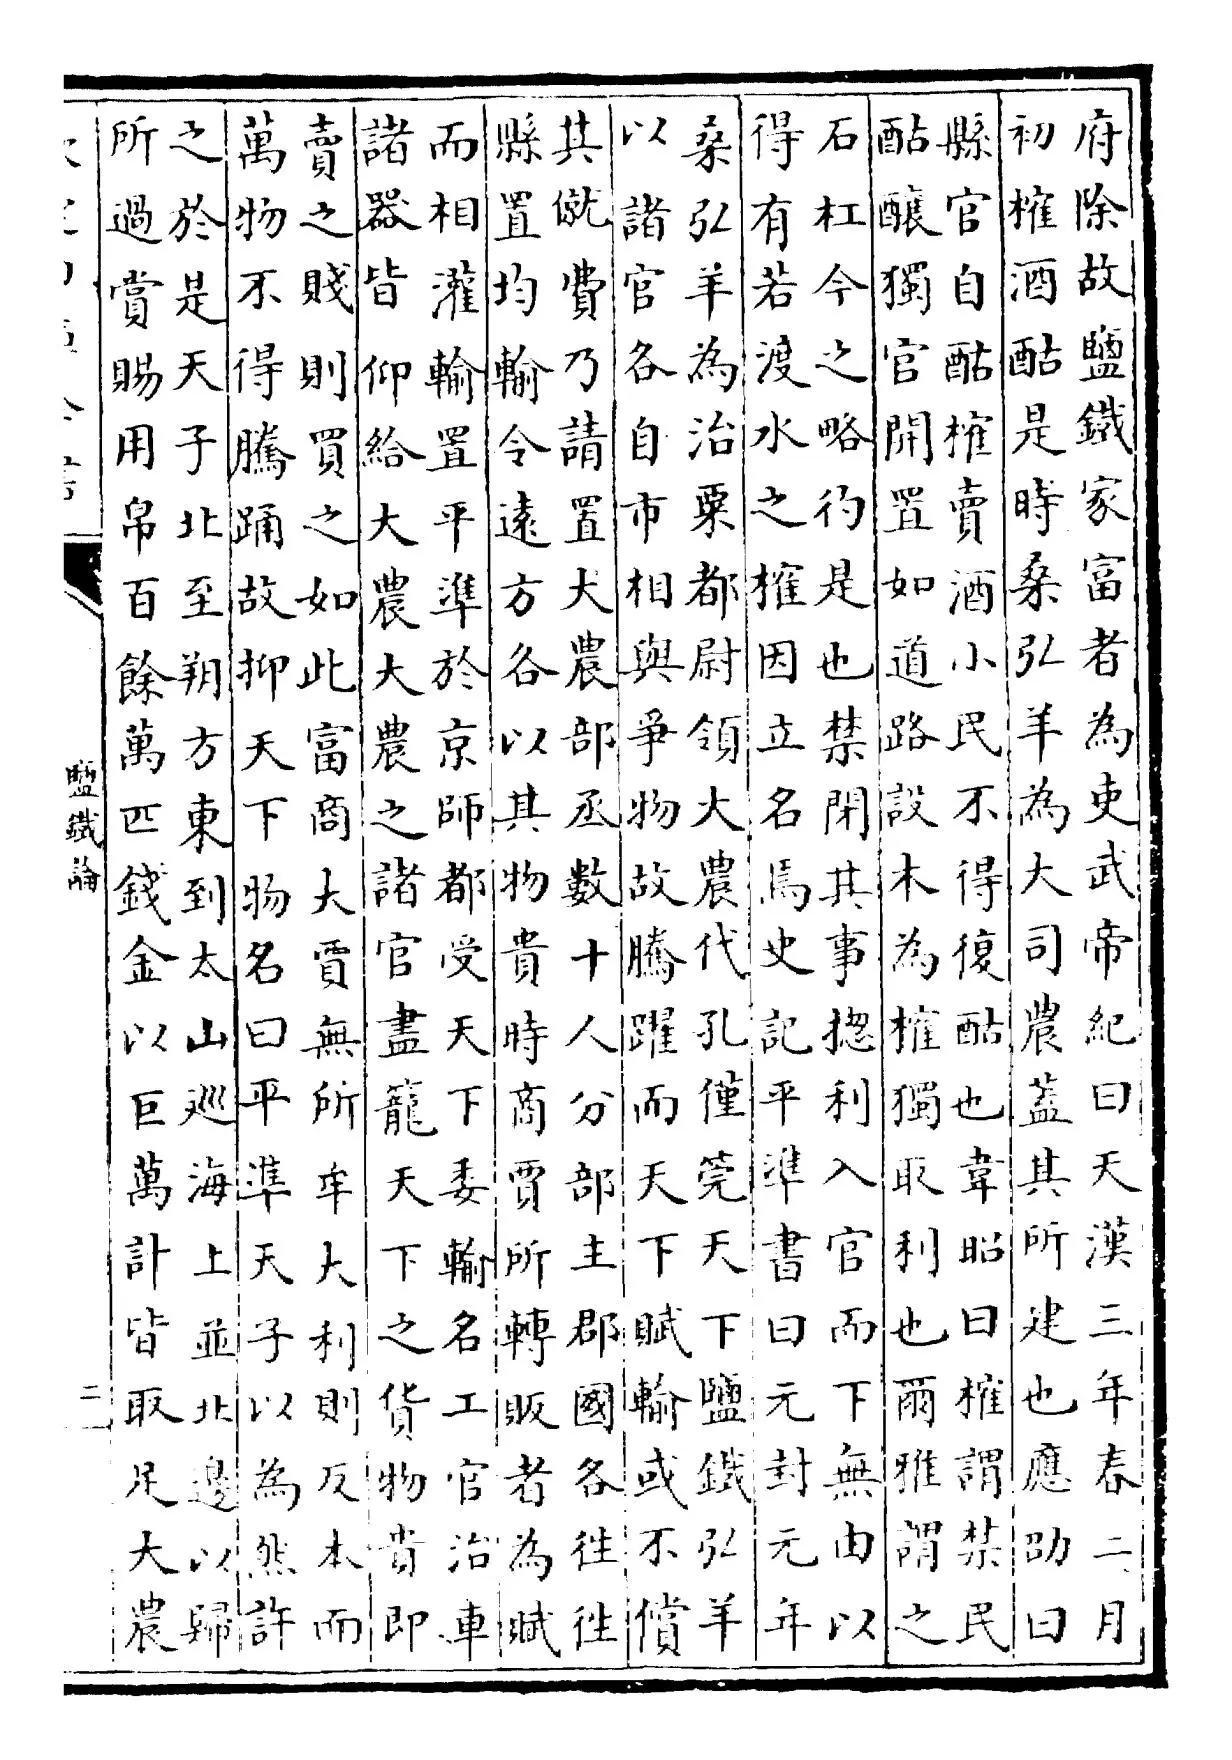 府除故鹽鐵家富者為吏武帝紀曰天漢三年春二月
初榷酒酤是時桑弘羊為大司農蓋其所建也應劭曰
縣官自酤榷賣酒小民不得復酤也韋昭曰榷謂禁民
酤釀獨官開置如道路設木為榷獨取利也爾雅謂之
石杠今之略彴是也禁閉其事揔利入官而下無由以
得有若渡水之榷因立名焉史記平準書曰元封元年
桑弘羊為治粟都尉領大農代孔僅筦天下鹽鐵弘羊
以諸官各自市相與爭物故騰躍而天下賦輸或不償
其僦費乃請置大農部丞數十人分部主郡國各往往
縣置均輸令遠方各以其物貴時商賈所轉販者為賦
而相灌輸置平準於京師都受天下委輸名工官治車
諸器皆仰給大農大農之諸官盡籠天下之貨物貴即
賣之賤則買之如此富商大賈無所牟大利則反本而
萬物不得騰踊故抑天下物名曰平準天子以為然許
之於是天子北至朔方東到太山巡海上並北邊以歸
所過賞賜用帛百餘萬匹錢金以巨萬計皆取足大農
鹽鐵論
二